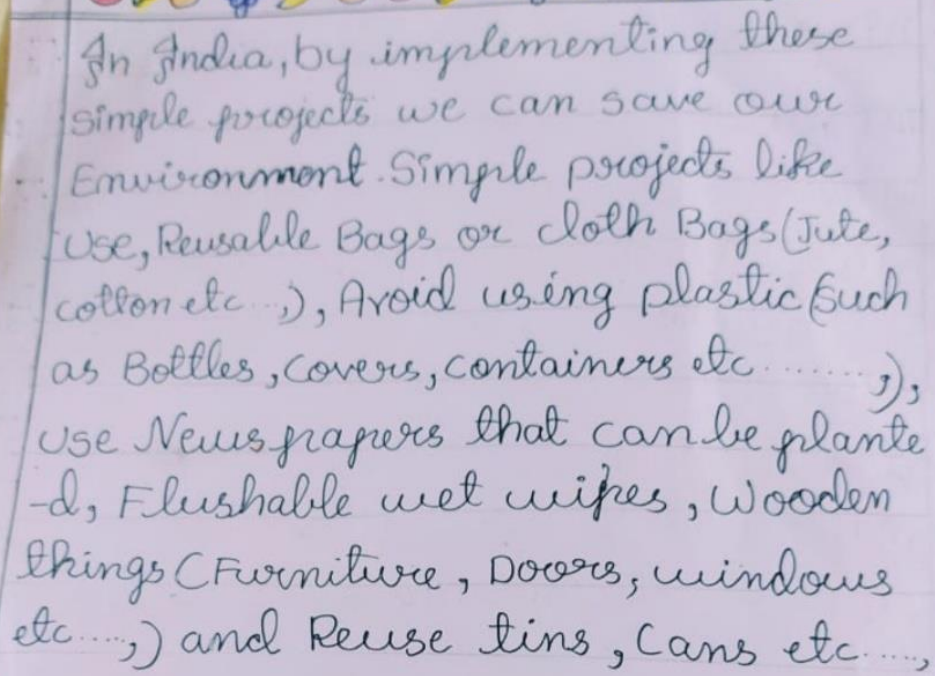 In India, by implementing these
simple projects we can save our
Environment. Simple projects like
Use, Reusable Bags or cloth Bags (Jute,
cotton etc...,), Avoid using plastic (Such
as Bottles, Covers, Containers etc........,),
Use Newspapers that can be plante
-d, Flushable wet wipes, Wooden
things (Furniture, Doors, windows
etc.....,) and Reuse tins, Cans etc.....,